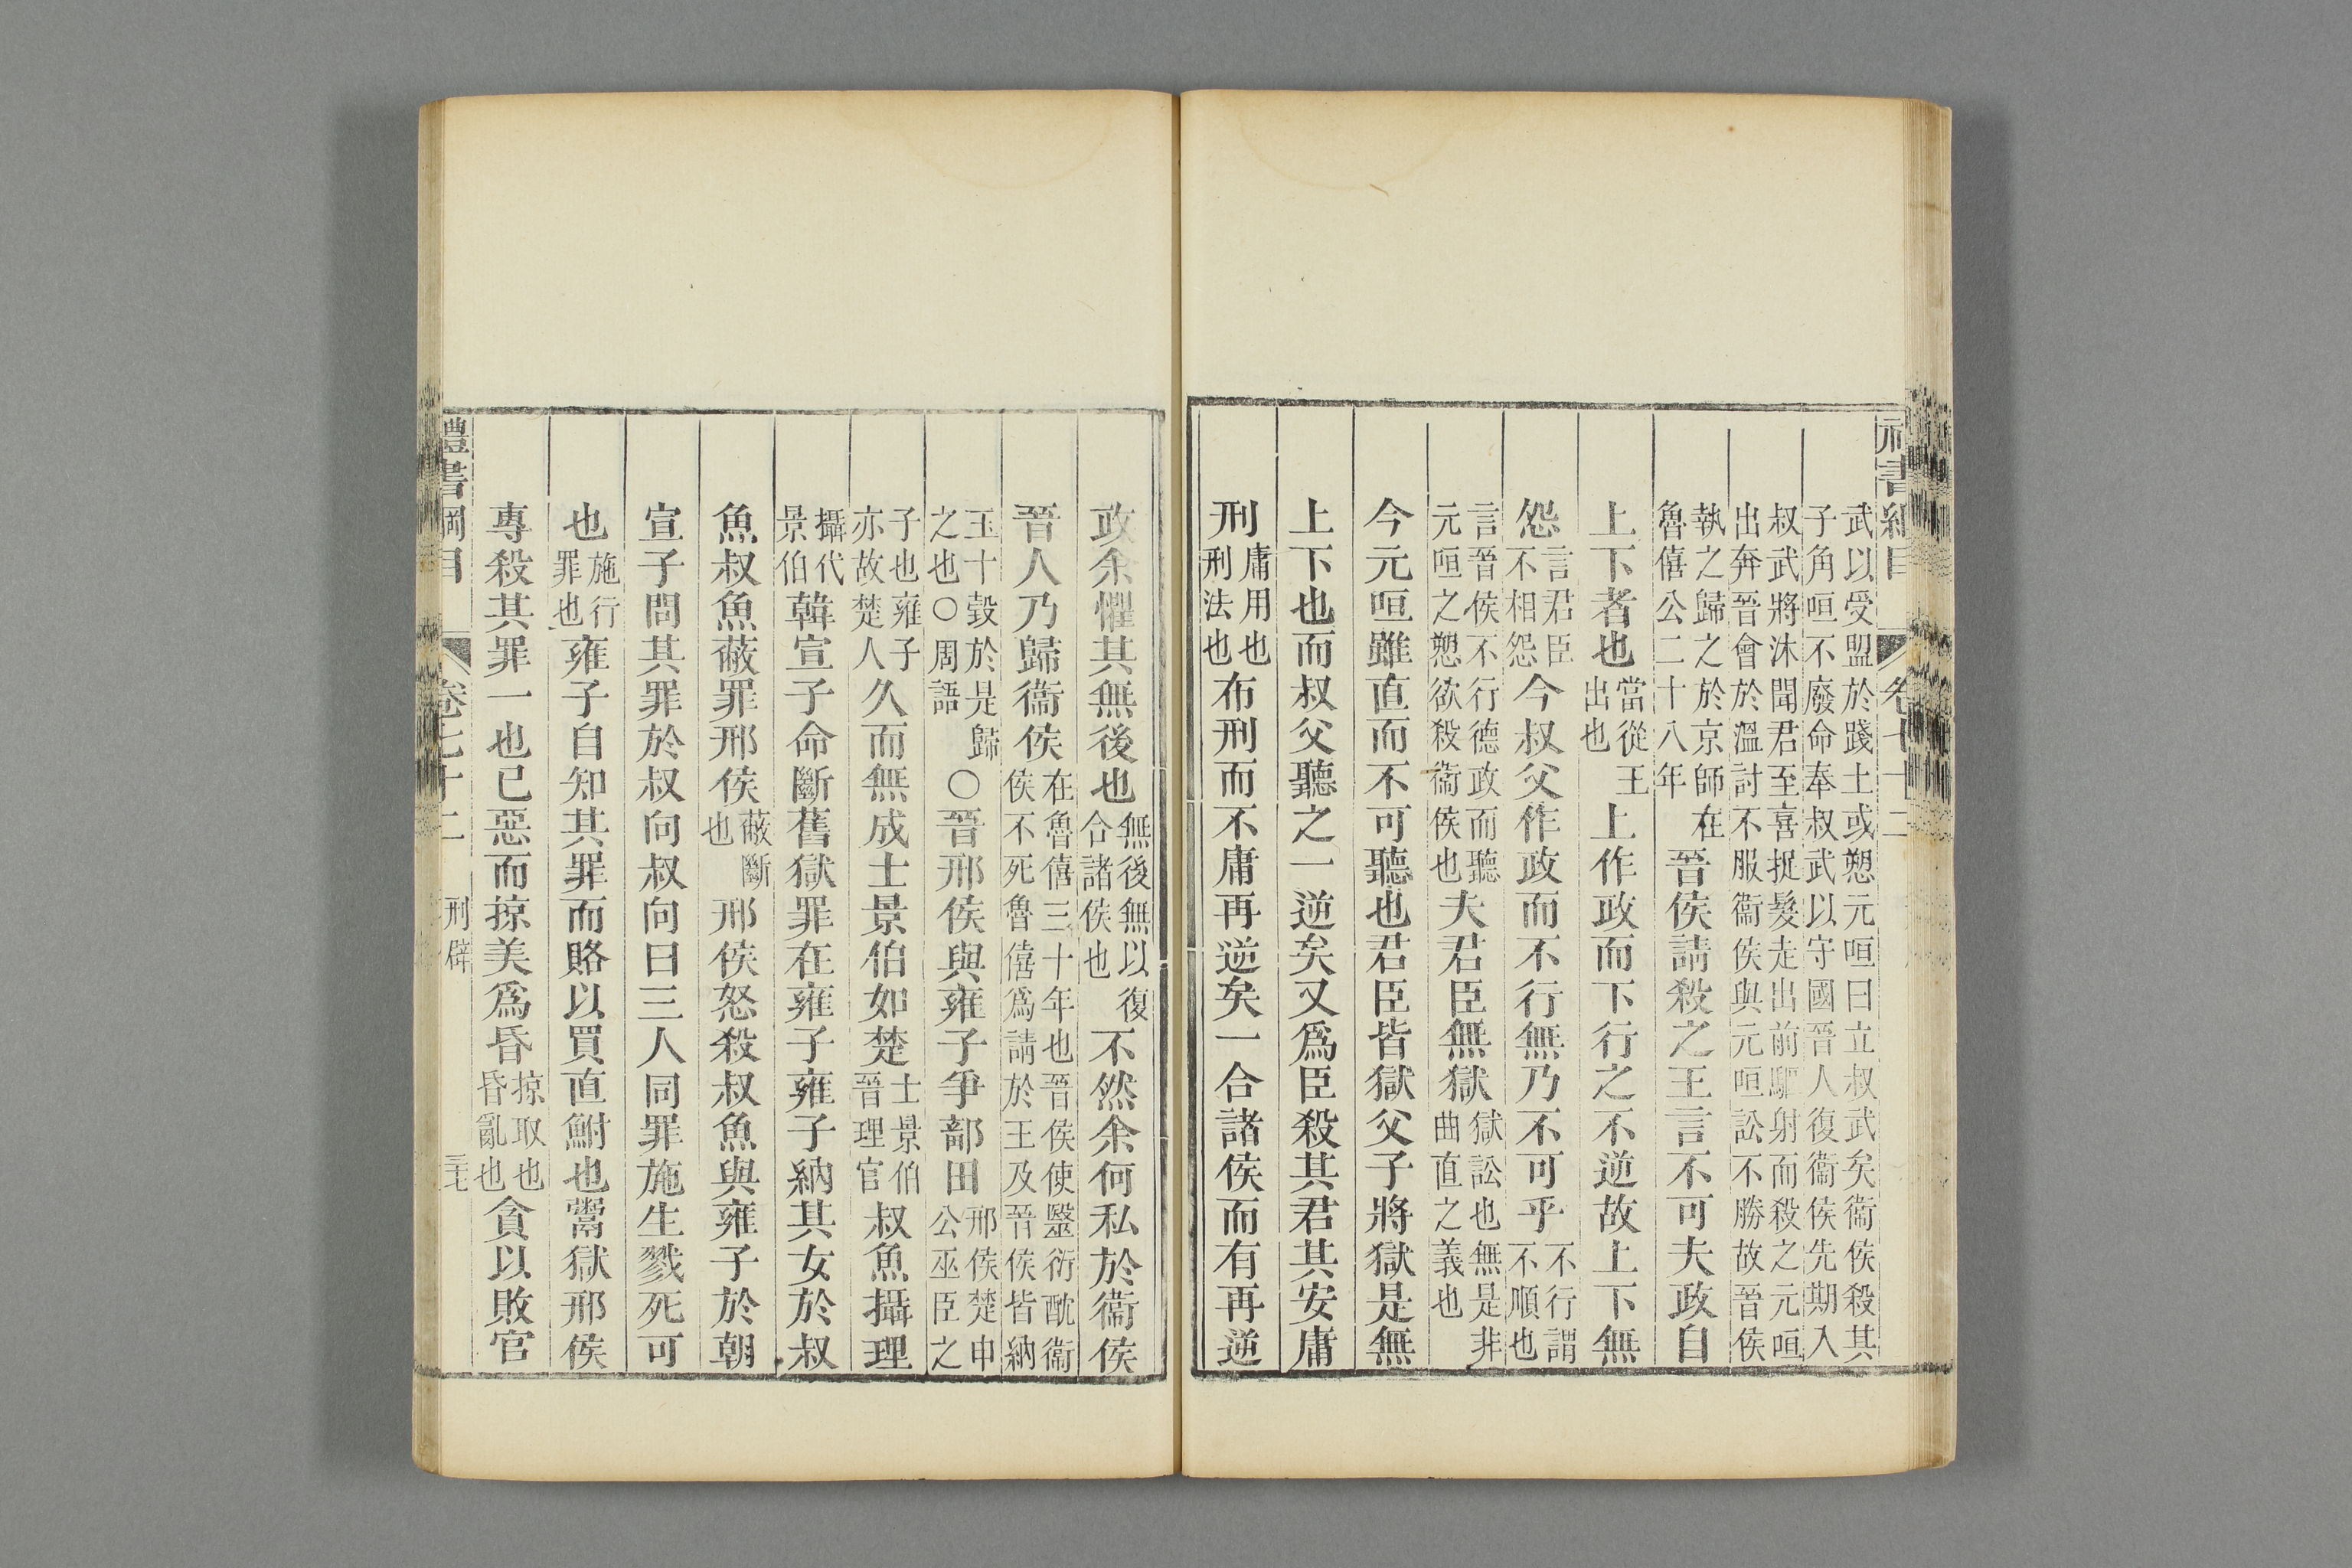 禮書綱目 卷七十二
武以受盟於踐土或愬元咺曰立叔武矣衛侯殺其
子角咺不廢命奉叔武以守國晉人復衛侯先期入
叔武將沐聞君至喜捉髮走出前驅射而殺之元咺
出奔晉會於溫討不服衛侯與元咺訟不勝故晉侯
執之歸之於京師在魯僖公二十八年晉侯請殺之王言不可夫政自
上下者也當從王出也上作政而下行之不逆故上下無
怨言君臣不相怨今叔父作政而不行無乃不可乎不行謂不順也
言晉侯不行德政而聽元咺之愬欲殺衛侯也夫君臣無獄獄訟也無是非曲直之義也
今元咺雖直而不可聽也君臣皆獄父子將獄是無
上下也而叔父聽之一逆矣又爲臣殺其君其安庸
刑庸用也刑法也布刑而不庸再逆矣一合諸侯而有再逆
政余懼其無後也無後無以復合諸侯也不然余何私於衛侯
晉人乃歸衛侯在魯僖三十年也晉侯使毉衍酖衛侯不死魯僖爲請於王及晉侯皆納
玉十瑴於是歸之也〇周語〇晉邢侯與雍子爭鄐田邢侯楚申公巫臣之
子也雍子亦故楚人久而無成士景伯如楚士景伯晉理官叔魚攝理
攝代景伯韓宣子命斷舊獄罪在雍子雍子納其女於叔
魚叔魚蔽罪邢侯蔽斷也邢侯怒殺叔魚與雍子於朝
宣子問其罪於叔向叔向曰三人同罪施生戮死可
也施行罪也雍子自知其罪而賂以買直鮒也鬻獄邢侯
專殺其罪一也已惡而掠美爲昏掠取也昏亂也貪以敗官
禮書綱目 卷七十二 刑辟 三十七